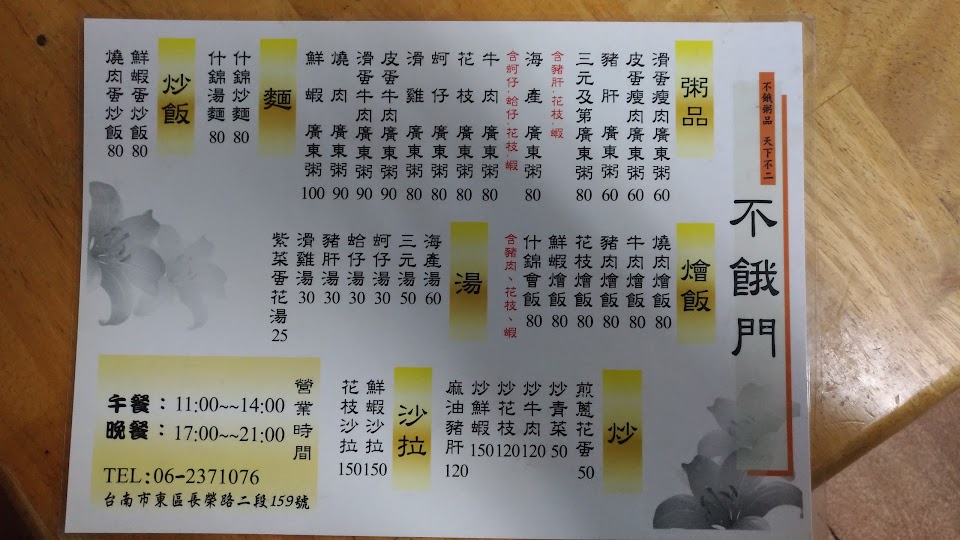 不餓粥品 天下不二
不餓門
粥品
滑蛋瘦肉廣東粥 60
皮蛋瘦肉廣東粥 60
豬肝廣東粥 60
三元及第廣東粥 80
含豬肝.花枝.蝦
海產廣東粥 80
含蚵仔.蛤仔.花枝.蝦
牛肉廣東粥 80
花枝廣東粥 80
蚵仔廣東粥 80
滑雞廣東粥 80
皮蛋牛肉廣東粥 90
滑蛋牛肉廣東粥 90
燒肉廣東粥 90
鮮蝦廣東粥 100
麵
什錦炒麵 80
什錦湯麵 80
炒飯
鮮蝦蛋炒飯 80
燒肉蛋炒飯 80
燴飯
燒肉燴飯 80
牛肉燴飯 80
豬肉燴飯 80
花枝燴飯 80
鮮蝦燴飯 80
什錦會飯 80
含豬肉、花枝、蝦
湯
海產湯 60
三元湯 50
蚵仔湯 30
蛤仔湯 30
豬肝湯 30
滑雞湯 30
紫菜蛋花湯 25
炒
煎蔥花蛋 50
炒青菜 50
炒牛肉 120
炒花枝 120
炒鮮蝦 150
麻油豬肝 120
沙拉
鮮蝦沙拉 150
花枝沙拉 150
營業時間
午餐：11:00~~14:00
晚餐：17:00~~21:00
TEL:06-2371076
台南市東區長榮路二段159號